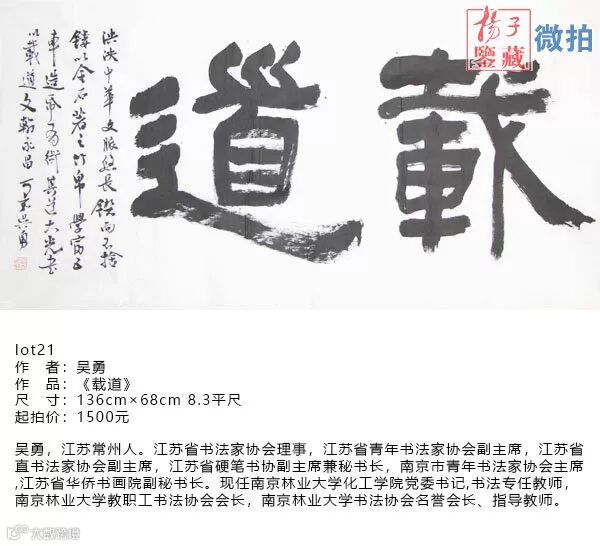 揚子
鑒藏
微拍
載道
泱泱中華文脉悠長鍥而不捨
鏤以金石著之竹帛學富五
車造 其道大光書
以載道文翰永昌 吴勇
lot21
作 者：吴勇
作 品：《载道》
尺 寸：136cm×68cm 8.3平尺
起拍价：1500元
吴勇，江苏常州人。江苏省书法家协会理事，江苏省青年书法家协会副主席，江苏省
直书法家协会副主席，江苏省硬笔书协副主席兼秘书长，南京市青年书法家协会主席
,江苏省华侨书画院副秘书长。现任南京林业大学化工学院党委书记,书法专任教师，
南京林业大学教职工书法协会会长，南京林业大学书法协会名誉会长、指导教师。
大数跨境